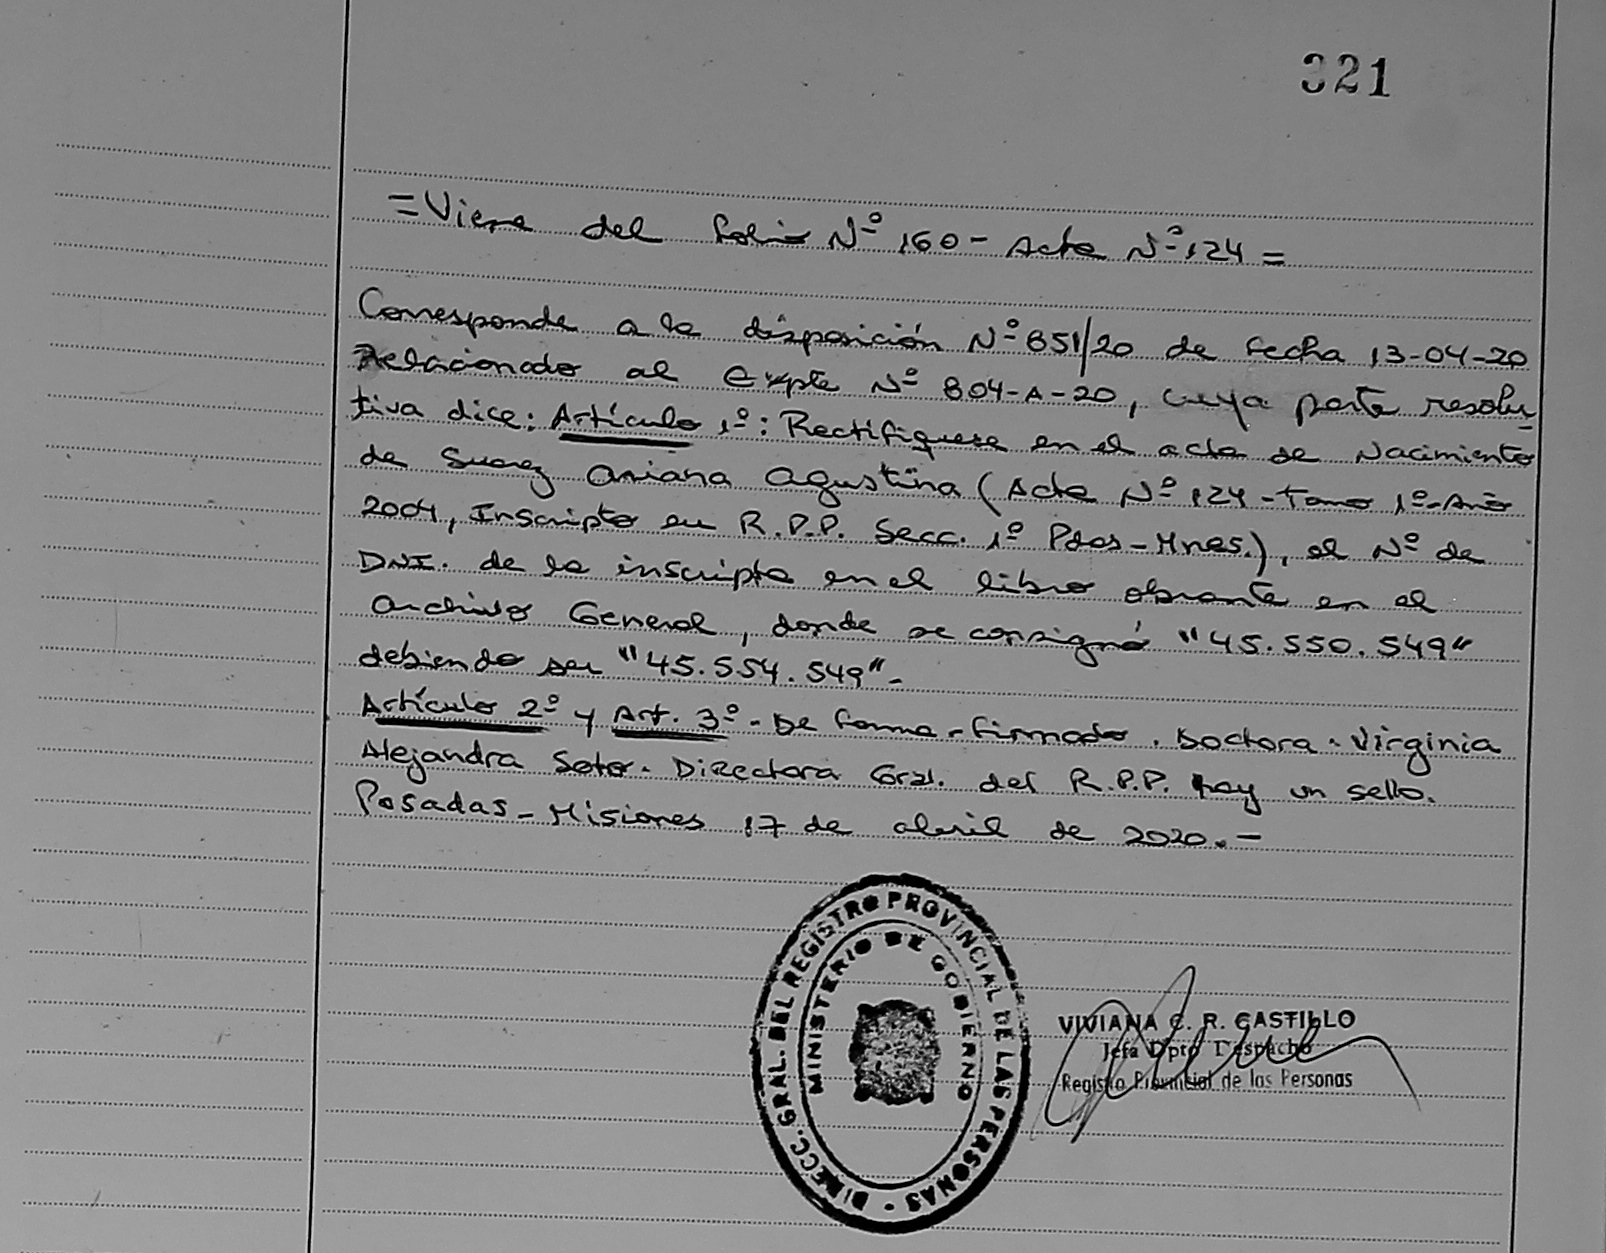 321
=Viene del folio Nº 160- Acta Nº 124=
Corresponde a la disposición Nº 651/20 de fecha 13-04-20
Relacionado al expte Nº 804-A-20, cuya parte resolu_
tiva dice: Artículo 1º: Rectifiquese en el acta de Nacimiento
de Suarez Ariana Agustina (Acta Nº 124-Tomo 1º-Año
2004, Inscripto en R.P.P. Secc. 1º Pdas-Mnes.), el Nº de
DNI. de la inscripta en el libro obrante en el
Archivo General, donde se consignó "45.550.549"
debiendo ser "45.554.549"-
Artículo 2º y Art. 3º- De forma-firmado. Doctora. Virginia
Alejandra Soto. Directora Gral. del R.P.P. hay un sello.
Posadas-Misiones 17 de abril de 2020.-
DIRECC. GRAL. DEL REGISTRO PROVINCIAL DE LAS PERSONAS
MINISTERIO DE GOBIERNO
VIVIANA C. R. CASTILLO
Jefa Dpto Despacho
Registro Provincial de las Personas